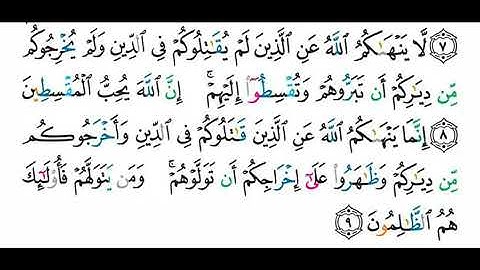 لَّا يَنْهَىٰكُمُ اللَّهُ عَنِ الَّذِينَ لَمْ يُقَـٰتِلُوكُمْ فِى الدِّينِ وَلَمْ يُخْرِجُوكُم ٧
مِّن دِيَـٰرِكُمْ أَن تَبَرُّوهُمْ وَتُقْسِطُوٓا۟ إِلَيْهِمْ ۚ إِنَّ اللَّهَ يُحِبُّ الْمُقْسِطِينَ
٨ إِنَّمَا يَنْهَىٰكُمُ اللَّهُ عَنِ الَّذِينَ قَـٰتَلُوكُمْ فِى الدِّينِ وَأَخْرَجُوكُم
مِّن دِيَـٰرِكُمْ وَظَـٰهَرُوا۟ عَلَىٰٓ إِخْرَاجِكُمْ أَن تَوَلَّوْهُمْ ۚ وَمَن يَتَوَلَّهُمْ فَأُو۟لَـٰٓئِكَ
هُمُ الظَّـٰلِمُونَ ٩